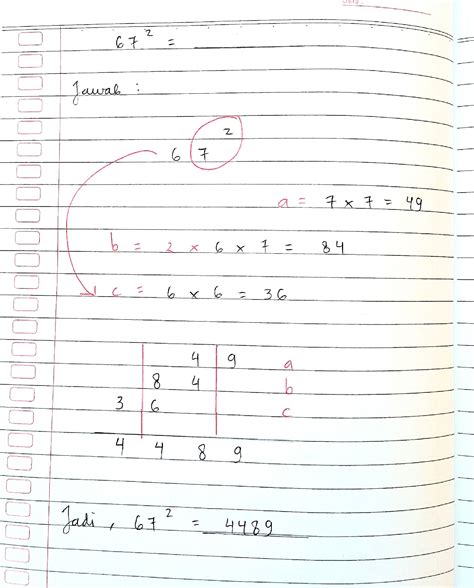 67² =
Jawab :
6 7²
a = 7 × 7 = 49
b = 2 × 6 × 7 = 84
c = 6 × 6 = 36
4 9 a
8 4 b
3 6 c
4 4 8 9
Jadi , 67² = 4489